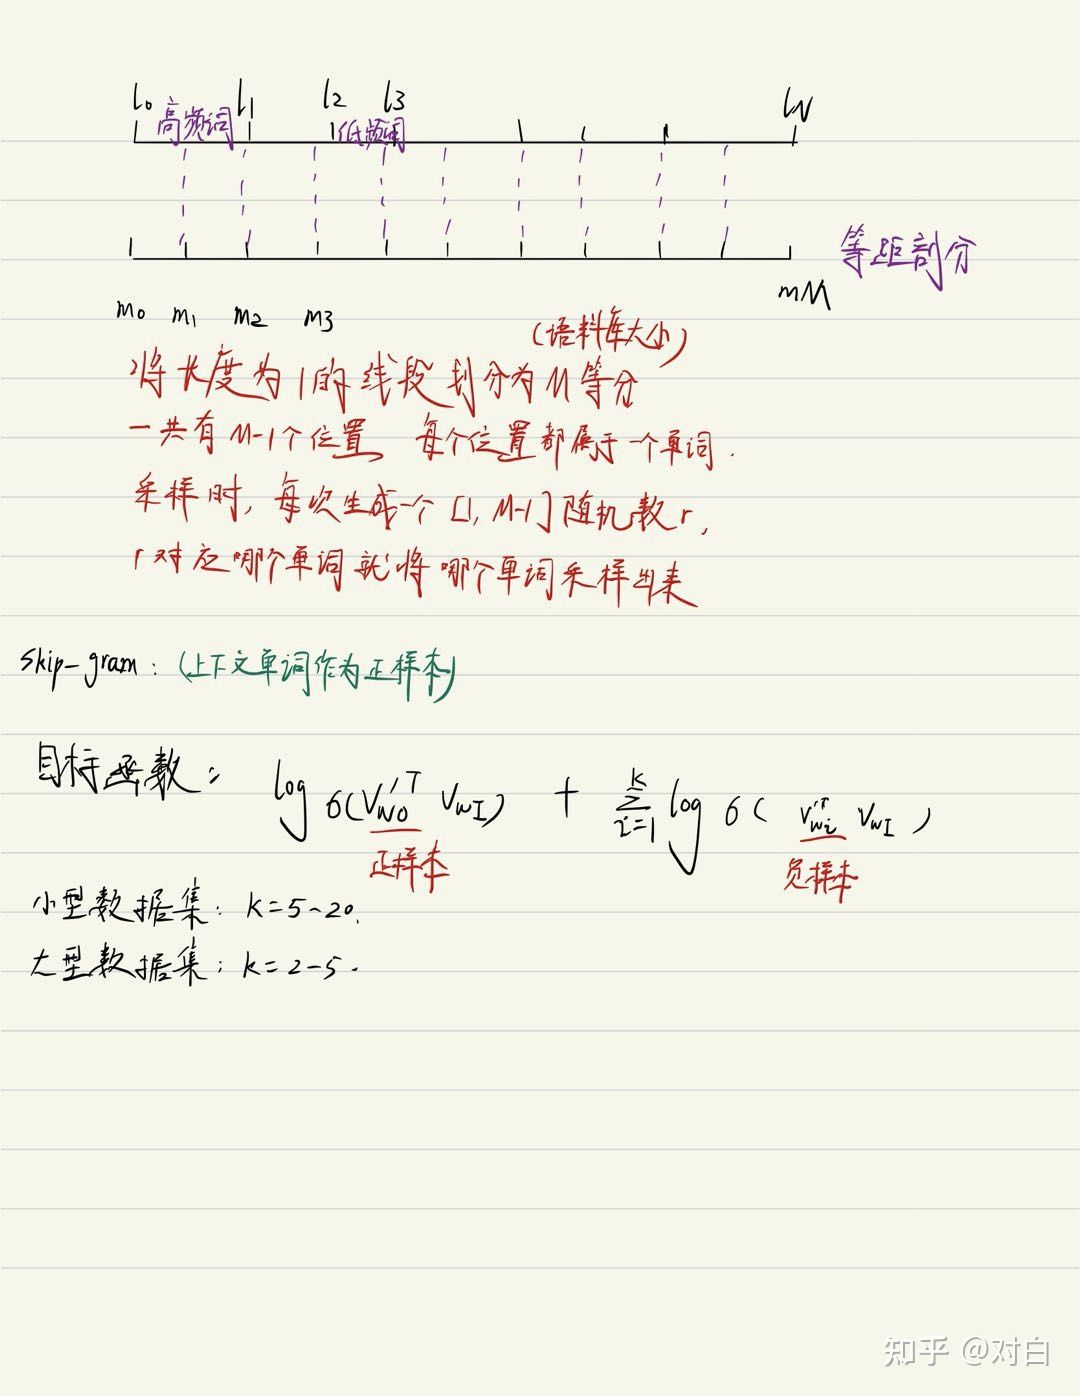 l0 高频词 l1 l2 低频词 l3 lN
等距剖分
m0 m1 m2 m3 mM
(语料库大小)
将长度为1的线段划分为M等分
一共有M-1个位置 每个位置都属于一个单词.
采样时, 每次生成一个[1, M-1]随机数r,
r对应哪个单词就将哪个单词采样出来
skip-gram: (上下文单词作为正样本)
目标函数: log σ(V'wo^T VwI) + Σ_{i=1}^{k} log σ(V'wi^T VwI)
正样本 负样本
小型数据集: k=5~20.
大型数据集: k=2-5.
知乎 @对白